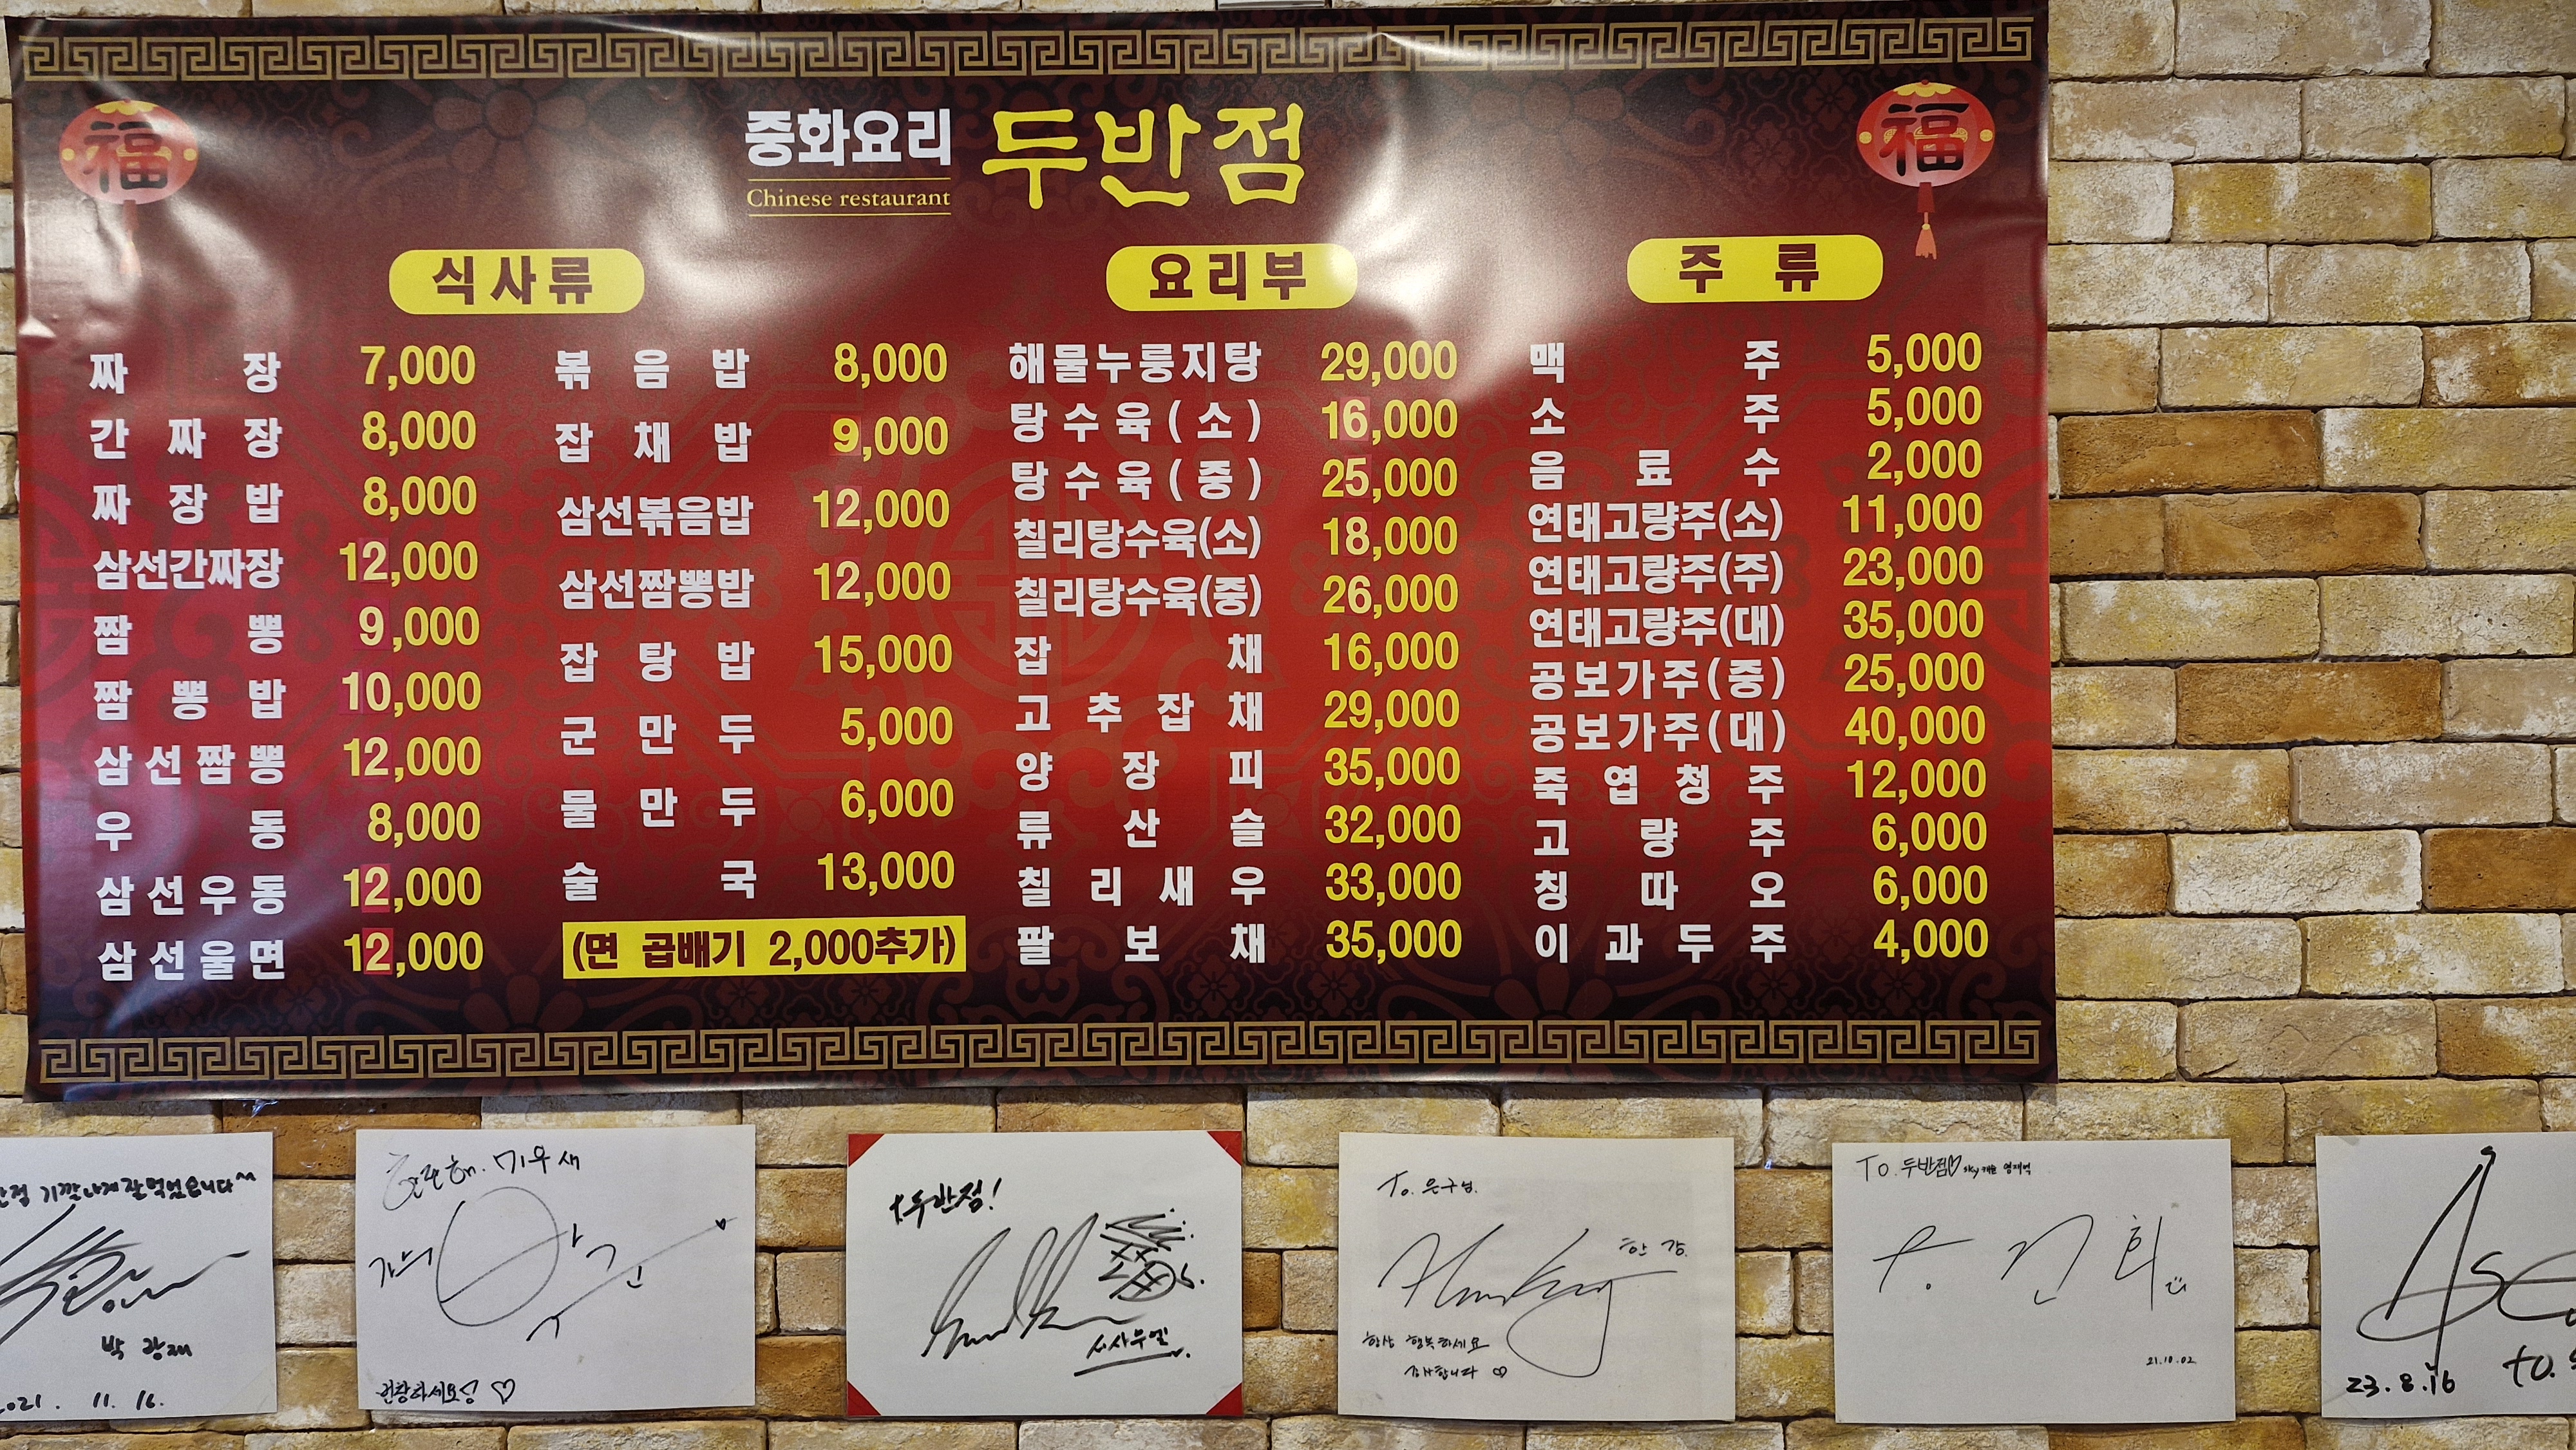 福
福
중화요리
Chinese restaurant
두반점
식사류
짜장 7,000
간짜장 8,000
짜장밥 8,000
삼선간짜장 12,000
짬뽕 9,000
짬뽕밥 10,000
삼선짬뽕 12,000
우동 8,000
삼선우동 12,000
삼선울면 12,000
볶음밥 8,000
잡채밥 9,000
삼선볶음밥 12,000
삼선짬뽕밥 12,000
잡탕밥 15,000
군만두 5,000
물만두 6,000
술국 13,000
(면 곱배기 2,000추가)
요리부
해물누룽지탕 29,000
탕수육(소) 16,000
탕수육(중) 25,000
칠리탕수육(소) 18,000
칠리탕수육(중) 26,000
잡채 16,000
고추잡채 29,000
양장피 35,000
류산슬 32,000
칠리새우 33,000
팔보채 35,000
주류
맥주 5,000
소주 5,000
음료수 2,000
연태고량주(소) 11,000
연태고량주(주) 23,000
연태고량주(대) 35,000
공보가주(중) 25,000
공보가주(대) 40,000
죽엽청주 12,000
고량주 6,000
칭따오 6,000
이과두주 4,000
기깔나게 잘 먹었습니다^^
박광재
2021. 11. 16.
미우새
가수
번창하세요 ♡
to 두반점!
사무엘
To. 은구님.
한강.
항상 행복하세요
감사합니다 ♡
To. 두반점♡ sky
21.10.02
23.8.16 to.